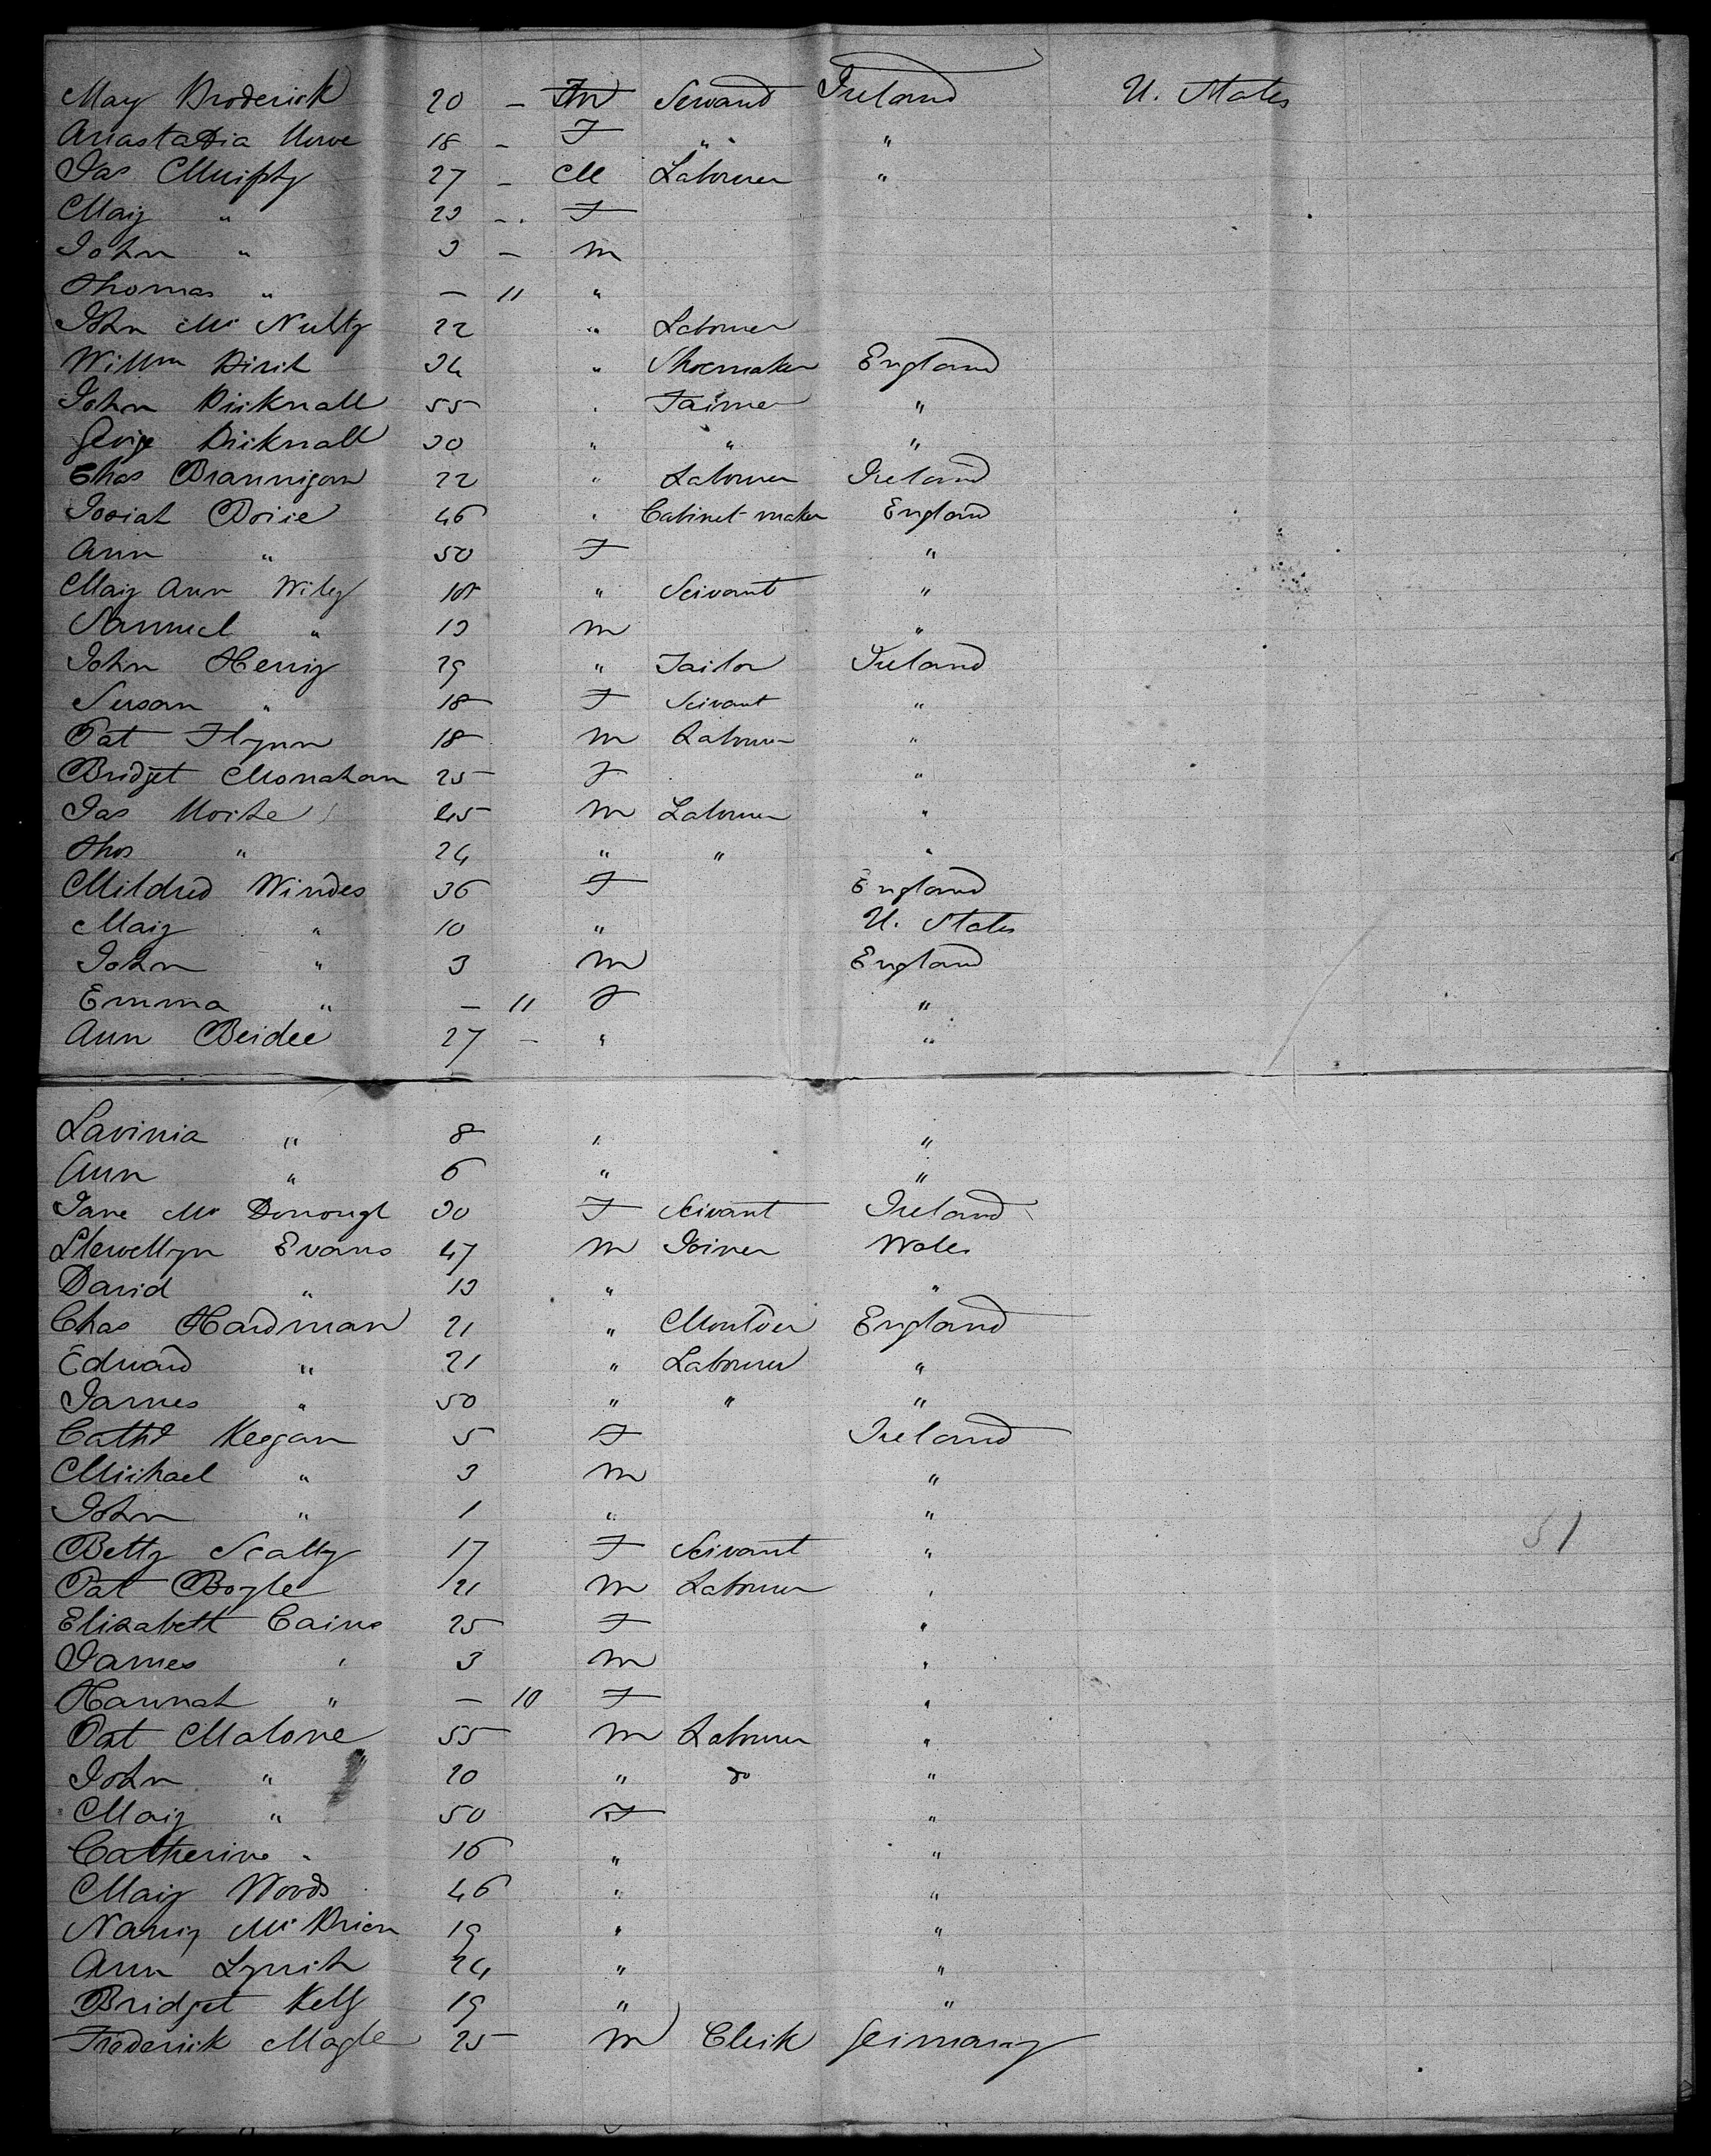 Mary Broderick 20 – Fm Servant Ireland U. States
Anastatia 18 – F " "
Jas Murphy 27 – M Labourer "
Mary " 23 – F
John " 3 – m
Thomas " – 11 "
John Mc Nulty 22 " Labourer
Willm 34 " Shoemaker England
John Bicknall 55 " Farmer "
George Bicknall 30 " " "
Chas Brannigan 22 " Labourer Ireland
Josiah 46 " Cabinet-maker England
Ann " 50 F "
Mary Ann Wiley 18 " Servant "
Samuel " 13 m "
John Henry 29 " Tailor Ireland
Susan " 18 F Servant "
Pat Flynn 18 m Labourer "
Bridget Monahan 25 F "
Jas 45 m Labourer "
Thos " 24 " " "
Mildred Windes 36 F England
Mary " 10 " U. States
John " 3 m England
Emma " – 11 F "
Ann 27 – " "
Lavinia " 8 " "
Ann " 6 " "
Jane Mc Donough 30 F Servant Ireland
Llewellyn Evans 47 m Joiner Wales
David " 13 " "
Chas Hardman 21 " Moulder England
Edward " 21 " Labourer "
James " 50 " " "
Cathe Keegan 5 F Ireland
Michael " 3 m "
John " 1 " "
Betty Scally 17 F Servant "
Pat Boyle 21 m Labourer "
Elizabeth Cairns 25 F "
James " 3 m "
Hannah " – 10 F "
Pat Malone 55 m Labourer "
John " 20 " do "
Mary " 50 F "
Catherine " 16 " "
Mary Woods 46 " "
Nancy Mc Brien 19 " "
Ann Lynch 24 " "
Bridget Kelly 19 " "
Frederick Magle 25 m Clerk Germany